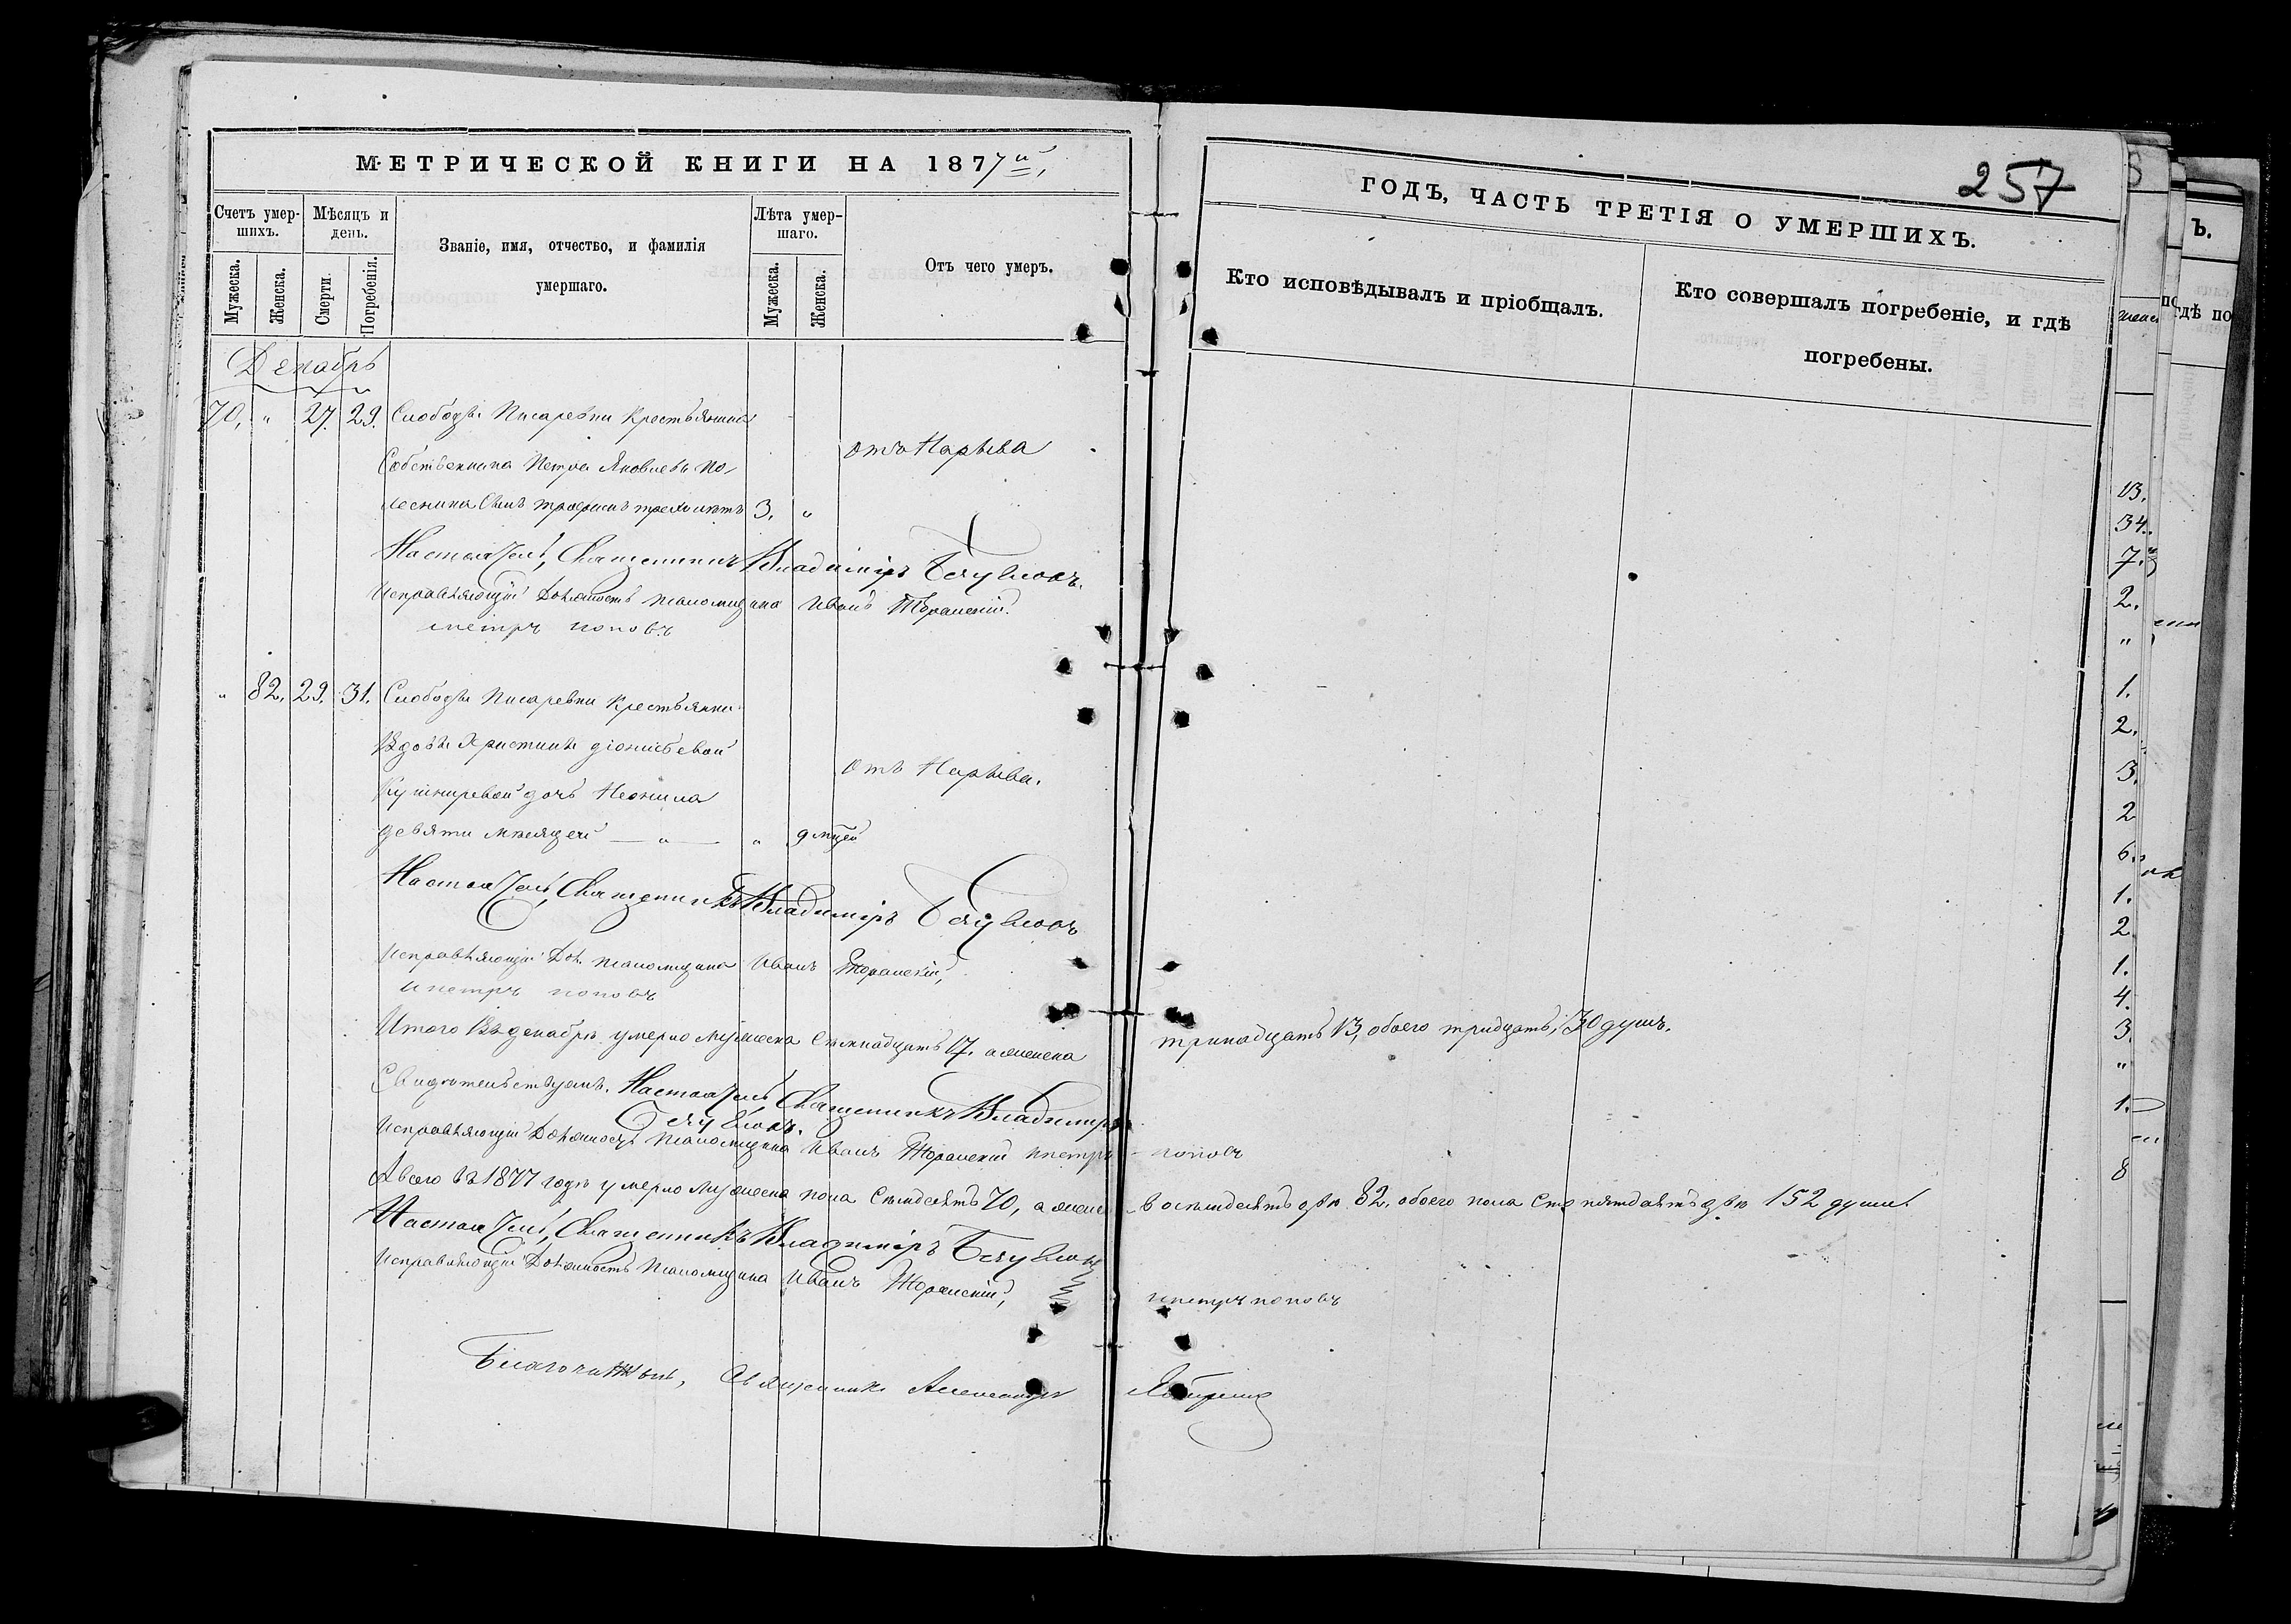 МЕТРИЧЕСКОЙ КНИГИ НА 1877й
Счетъ умершихъ.
Мѣсяцъ и день.
Званіе, имя, отчество, и фамилія умершаго.
Лѣта умершаго.
Отъ чего умеръ.
Мужеска.
Женска.
Смерти
Погребенія.
Мужеска.
Женска.
Декабрь
70. " 27. 29. Слободы Писаревки Крестьянина
Собственника Петра Яковлева По-
лесника Сынъ Трофимъ трехъ лѣтъ 3. "
отъ Нарыва
Настоятель, Священникъ Владиміръ
Исправляющій Должность Псаломщика Иванъ
и петръ поповъ
" 82. 29. 31. Слободы Писаревки Крестьянки
Вдовы Христины Діонисьевой
Кушниревой дочь Неонила
девяти мѣсяцей — " — " 9 мцей
отъ Нарыва.
Настоятель, Священникъ Владиміръ
Исправляющій Дол. Псаломщика Иванъ
и петръ поповъ
Итого Въ декабрѣ умерло мужеска Семнадцать 17. а женска тринадцать 13, обоего тридцать, 30 душъ.
Свидѣтельствуемъ. Настоятель Священникъ Владиміръ
Исправляющій Должность Псаломщика Иванъ и петръ поповъ
А всего въ 1877 годѣ умерло мужеска пола Семдесятъ 70, а женск восемдесятъ двѣ 82. обоего пола Сто пятдесятъ двѣ 152 души.
Настоятель, Священникъ Владиміръ
Исправляющій Должность Псаломщика Иванъ
и петръ поповъ
Благочинный, Священникъ Александръ
257
ГОДЪ, ЧАСТЬ ТРЕТІЯ О УМЕРШИХЪ.
Кто исповѣдывалъ и пріобщалъ.
Кто совершалъ погребеніе, и гдѣ погребены.
Ъ.
гдѣ по
13.
34.
7.
2.
"
1.
2.
3.
2
6.
1.
2.
1.
4.
3.
"
1.
8